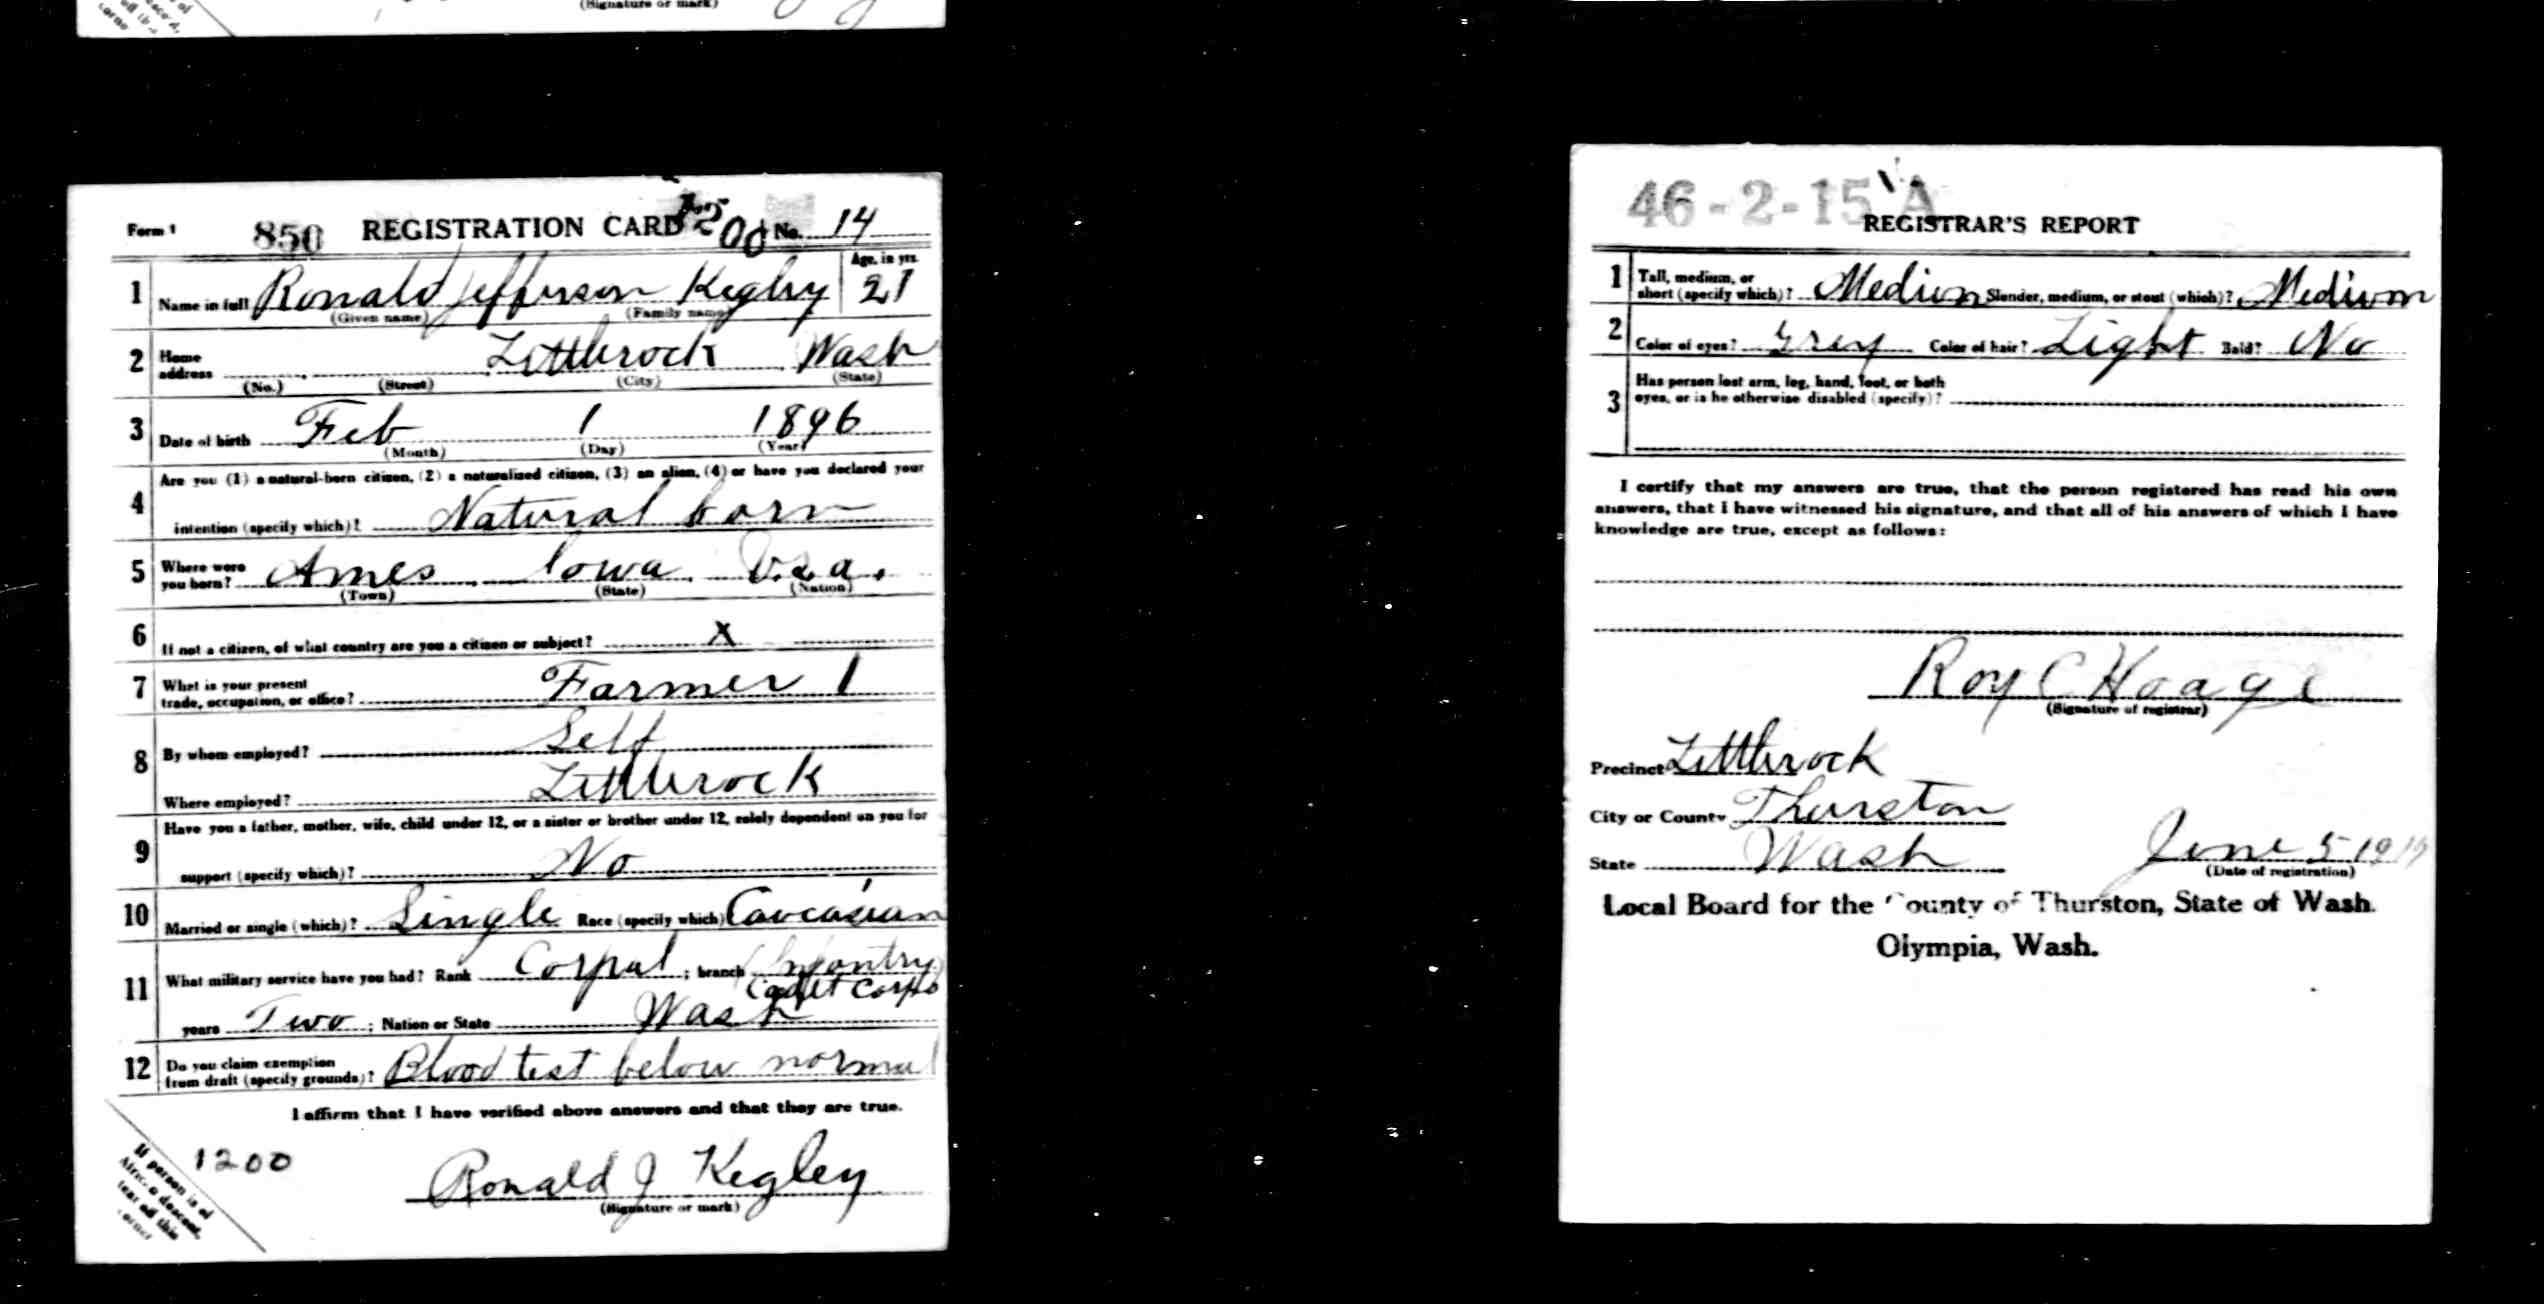 (Signature or mark)
Form 1 850 REGISTRATION CARD 1200 No. 14
1 Name in full Ronald Jefferson Kegley Age, in yrs. 21
(Given name) (Family name)
2 Home address Littlerock Wash
(No.) (Street) (City) (State)
3 Date of birth Feb 1 1896
(Month) (Day) (Year)
4 Are you (1) a natural-born citizen, (2) a naturalized citizen, (3) an alien, (4) or have you declared your
intention (specify which)? Natural born
5 Where were you born? Ames Iowa U.S.a.
(Town) (State) (Nation)
6 If not a citizen, of what country are you a citizen or subject? X
7 What is your present trade, occupation, or office? Farmer 1
8 By whom employed? Self
Where employed? Littlerock
9 Have you a father, mother, wife, child under 12, or a sister or brother under 12, solely dependent on you for
support (specify which)? No
10 Married or single (which)? Single Race (specify which) Caucasian
11 What military service have you had? Rank Corpal; branch Infantry
Cadet Corps
years Two; Nation or State Wash
12 Do you claim exemption from draft (specify grounds)? Blood test below normal
I affirm that I have verified above answers and that they are true.
1200
Ronald J Kegley
(Signature or mark)
If person is of
African descent,
tear off this
corner
46-2-15 A
REGISTRAR'S REPORT
1 Tall, medium, or short (specify which)? Medium Slender, medium, or stout (which)? Medium
2 Color of eyes? Grey Color of hair? Light Bald? No
3 Has person lost arm, leg, hand, foot, or both
eyes, or is he otherwise disabled (specify)?
I certify that my answers are true, that the person registered has read his own
answers, that I have witnessed his signature, and that all of his answers of which I have
knowledge are true, except as follows:
Roy C Hoage
(Signature of registrar)
Precinct Littlerock
City or County Thurston
State Wash June 5 1917
(Date of registration)
Local Board for the County of Thurston, State of Wash.
Olympia, Wash.